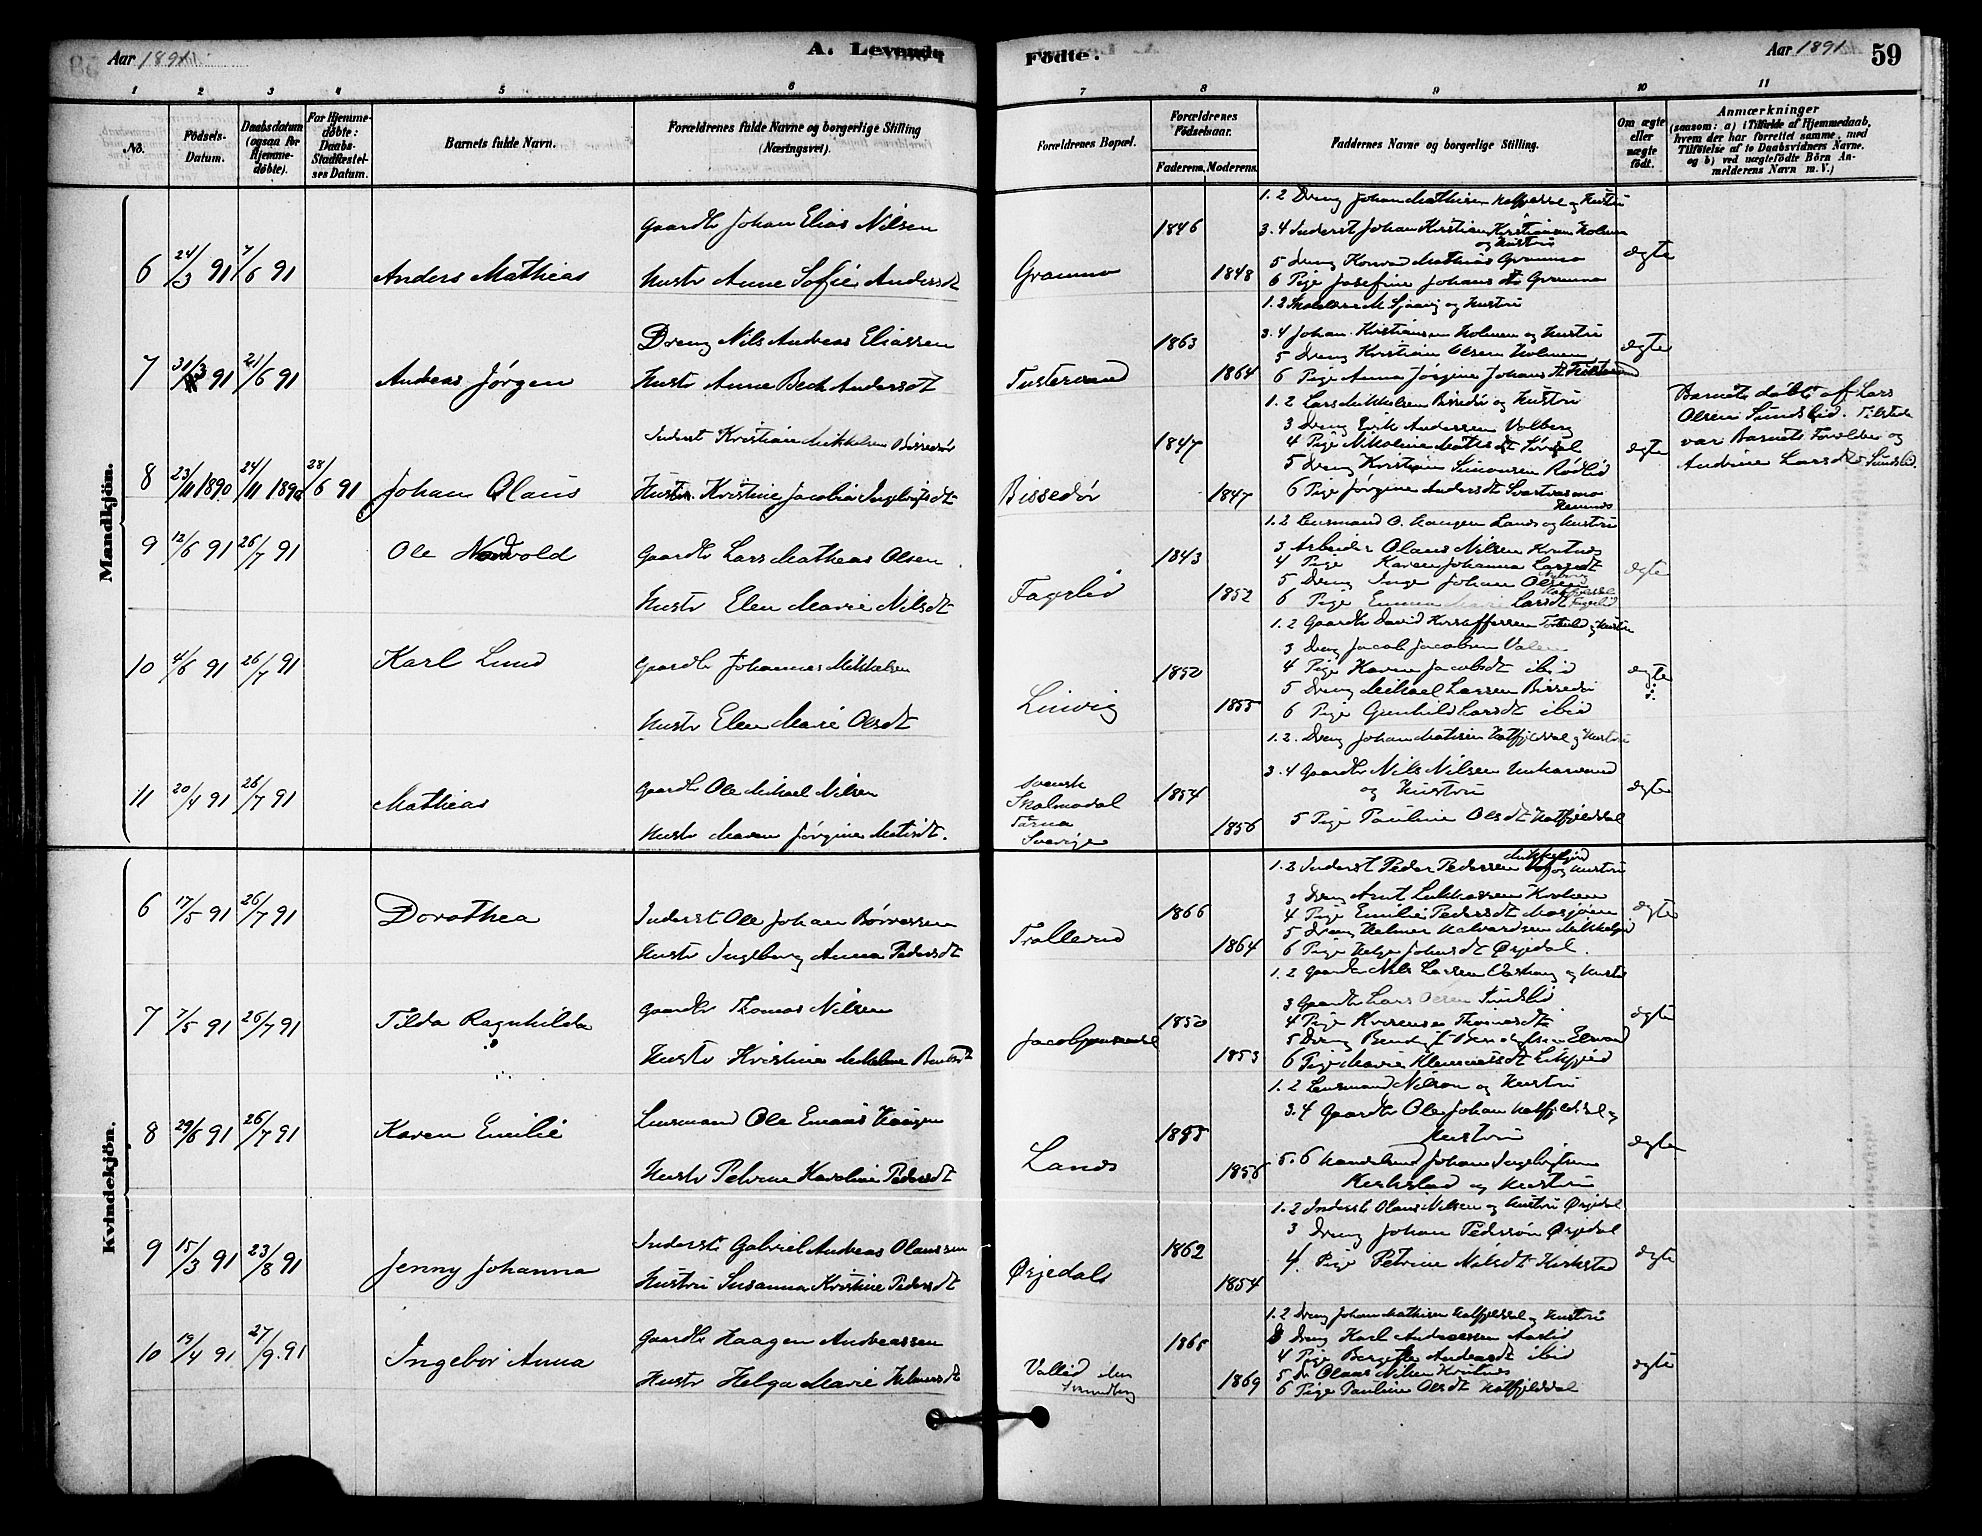 Aar 1891. A. Levende Fødte. Aar 1891 59
1 2 3 4 5 6 7 8 9 10 11
No.
Fødsels-Datum.
Daabsdatum (ogsaa for Hjemme-døbte).
For Hjemme-døbte: Daabs-Stadfæstel-ses Datum.
Barnets fulde Navn.
Forældrenes fulde Navne og borgerlige Stilling (Næringsvei).
Forældrenes Bopæl.
Forældrenes Fødselsaar.
Faderens. Moderens.
Faddernes Navne og borgerlige Stilling.
Om ægte eller uægte født.
Anmærkninger
(saasom: a) i Tilfælde af Hjemmedaab,
hvem der har forrettet samme, med
Tilføielse af to Daabsvidners Navne,
og b) ved uægtefødte Børn An-
melderens Navn m. V.)
Mandkjön.
6 24/3 91 7/6 91 Anders Mathias
Gaardbr Johan Elias Nilsen
Hustr Anne Sofie Andersdt
Gramno 1846 1848
1.2 Dreng Johan Mathisen Hatfjeldal og Hustru
3.4 Inderst Johan Kristian Kristiansen Holmen
og Hustru
5 Dreng Konrad Mathias Gramno
6 Pige Josefine Johansdt Gramno
ægte
7 31/3 91 21/6 91 Andreas Jørgen
Dreng Nils Andreas Eliassen
Hustr Anne Beck Andersdt
Tustervand 1863 1864
og Hustru
3.4 Johan Kristiansen Holmen og Hustru
5 Dreng Kristian Olsen Holmen
6 Pige Anna Jørgine Johansdt
ægte
8 23/11 1890 24/11 1890 28/6 91 Johan Olaus
Inderst Kristian Mikkelsen Bissedør
Hustr. Kristine Jacobia Ingebrigtsdt
Bissedør 1847 1847
1.2 Lars Mikkelsen Bissedør og Hustru
3 Dreng Erik Andersen Volberg
4 Pige Nikoline
5 Dreng Kristian Simonsen Rødlid
6 Pige Jørgine Andersdt Svartvasmo
ægte
Barnet døbt af Lars
Olsen Sundslid. Tilstede
var Barnets Forældre og
Andrine Larsdt Sundslid.
9 12/6 91 26/7 91 Ole Nordvold
Gaardbr Lars Mathias Olsen
Hustr Elen Marie Nilsdt
Fagerlid 1843 1852
1.2 Lensmand O. Haugen Lands og Hustru
3 Arbeider Olaus Nilsen Krutnes
4 Pige Karen Johanna Larsdt
5 Dreng Inge Johan Olsen
6 Pige Emma Marie Larsdt Fagerlid
ægte
10 4/6 91 26/7 91 Karl Lund
Gaardbr Johannes Mikkelsen
Hustr Elen Marie Olsdt
Linvig 1850 1855
1.2 Gaardbr David Kristoffersen og Hustru
3 Dreng Jacob Jacobsen Valen
4 Pige Karen Jacobsdt ibid
5 Dreng Mikael Larsen Bissedør
6 Pige Gunhild Larsdt ibid
ægte
11 20/4 91 26/7 91 Mathias
Gaardbr Ole Mikael Nilsen
Hustr Maren Jørgine Matisdt.
svensk
Skalmodal
Tärna
Sverige
1854 1856
1.2. Dreng Johan Matisen Hatfjeldal og Hustru
3.4 Gaardbr Nils Nilsen Unkarvand
og Hustru
5 Pige Pauline Olsdt Hatfjelddal
ægte
Kvindekjön.
6 17/5 91 26/7 91 Dorothea
Inderst Ole Johan Børresen
Hustr Ingeborg Anna Pedersdt
Trollerud 1866 1864
1.2 Inderst Peder Pedersen og Hustru
3 Dreng Arnt Lukkassen Holmen
4 Pige Emilie Pedersdt Mosjøen
5 Dreng Helmer Halvardsen
6 Pige Helga Johansdt Ørjedal.
ægte
7 7/5 91 26/7 91 Tilda Ragnhilda
Gaardbr Thomas Nilsen
Hustr Kristina
1850 1853
1.2 Gaardbr Nils Larsen og Hustr
3 Gaardbr Lars Olsen Sundslid
4 Pige Thomasdt
5 Dreng
6 Pige Marie
ægte
8 29/6 91 26/7 91 Karen Emilie
Lensmand Ole Emans Haugen
Hustr Petrine Karoline Pedersdt
Lands 1855 1856
1.2 Lensmand Nilson og Hustru
3.4 Gaardbr Ole Johan Hatfjelddal og
Hustru
5.6 Handelsmd Johan Ingebrigtsen
Kirkstad og Hustru
ægte
9 15/3 91 23/8 91 Jenny Johanna
Inderst Gabriel Andreas Olaussen
Hustru Susanna Kristine Pedersdt
Ørjedals 1862 1854
1.2 Inderst Olaus Nilsen og Hustru Ørjedal
3 Dreng Johan Pedersøn Ørjedal
4. Pige Petrine Nilsdt Kirksted
ægte
10 19/4 91 27/9. 91 Ingebor Anna
Gaardbr Haagen Andreassen
Hustr Helga Marie Helmersdt
Vallid 1865 1869
1.2 Dreng Johan Mathisen Hatfjelddal og Hustru
3 Dreng Karl Andreassen Aaslid
4 Pige Andersdt ibid
5 Olaus Nilsen Krutnes
6 Pige Pauline Olsdt Hatfjelddal
ægte